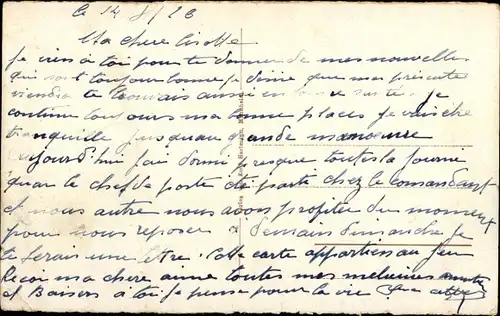 Le 14
Ma chere
Je viens à toi pour te donner de mes nouvelles
qui sont toujour bonne je désire que ma présente
viendra te trouvais aussi en bonne santé. Je
continue toujours ma bonne place je vais être
tranquille jusquau grande manœuvre
aujourd'hui j'ai dormi presque toutes la journe
quar le chef de poste été parti chez le comandant
et nous autre nous avons profiter du moment
pour nous reposer. demain dimanche je
te ferais une lettre. Cette carte appartien au jeu
Recoi ma chere toutes mes
et Baisers à toi je pense pour la vie